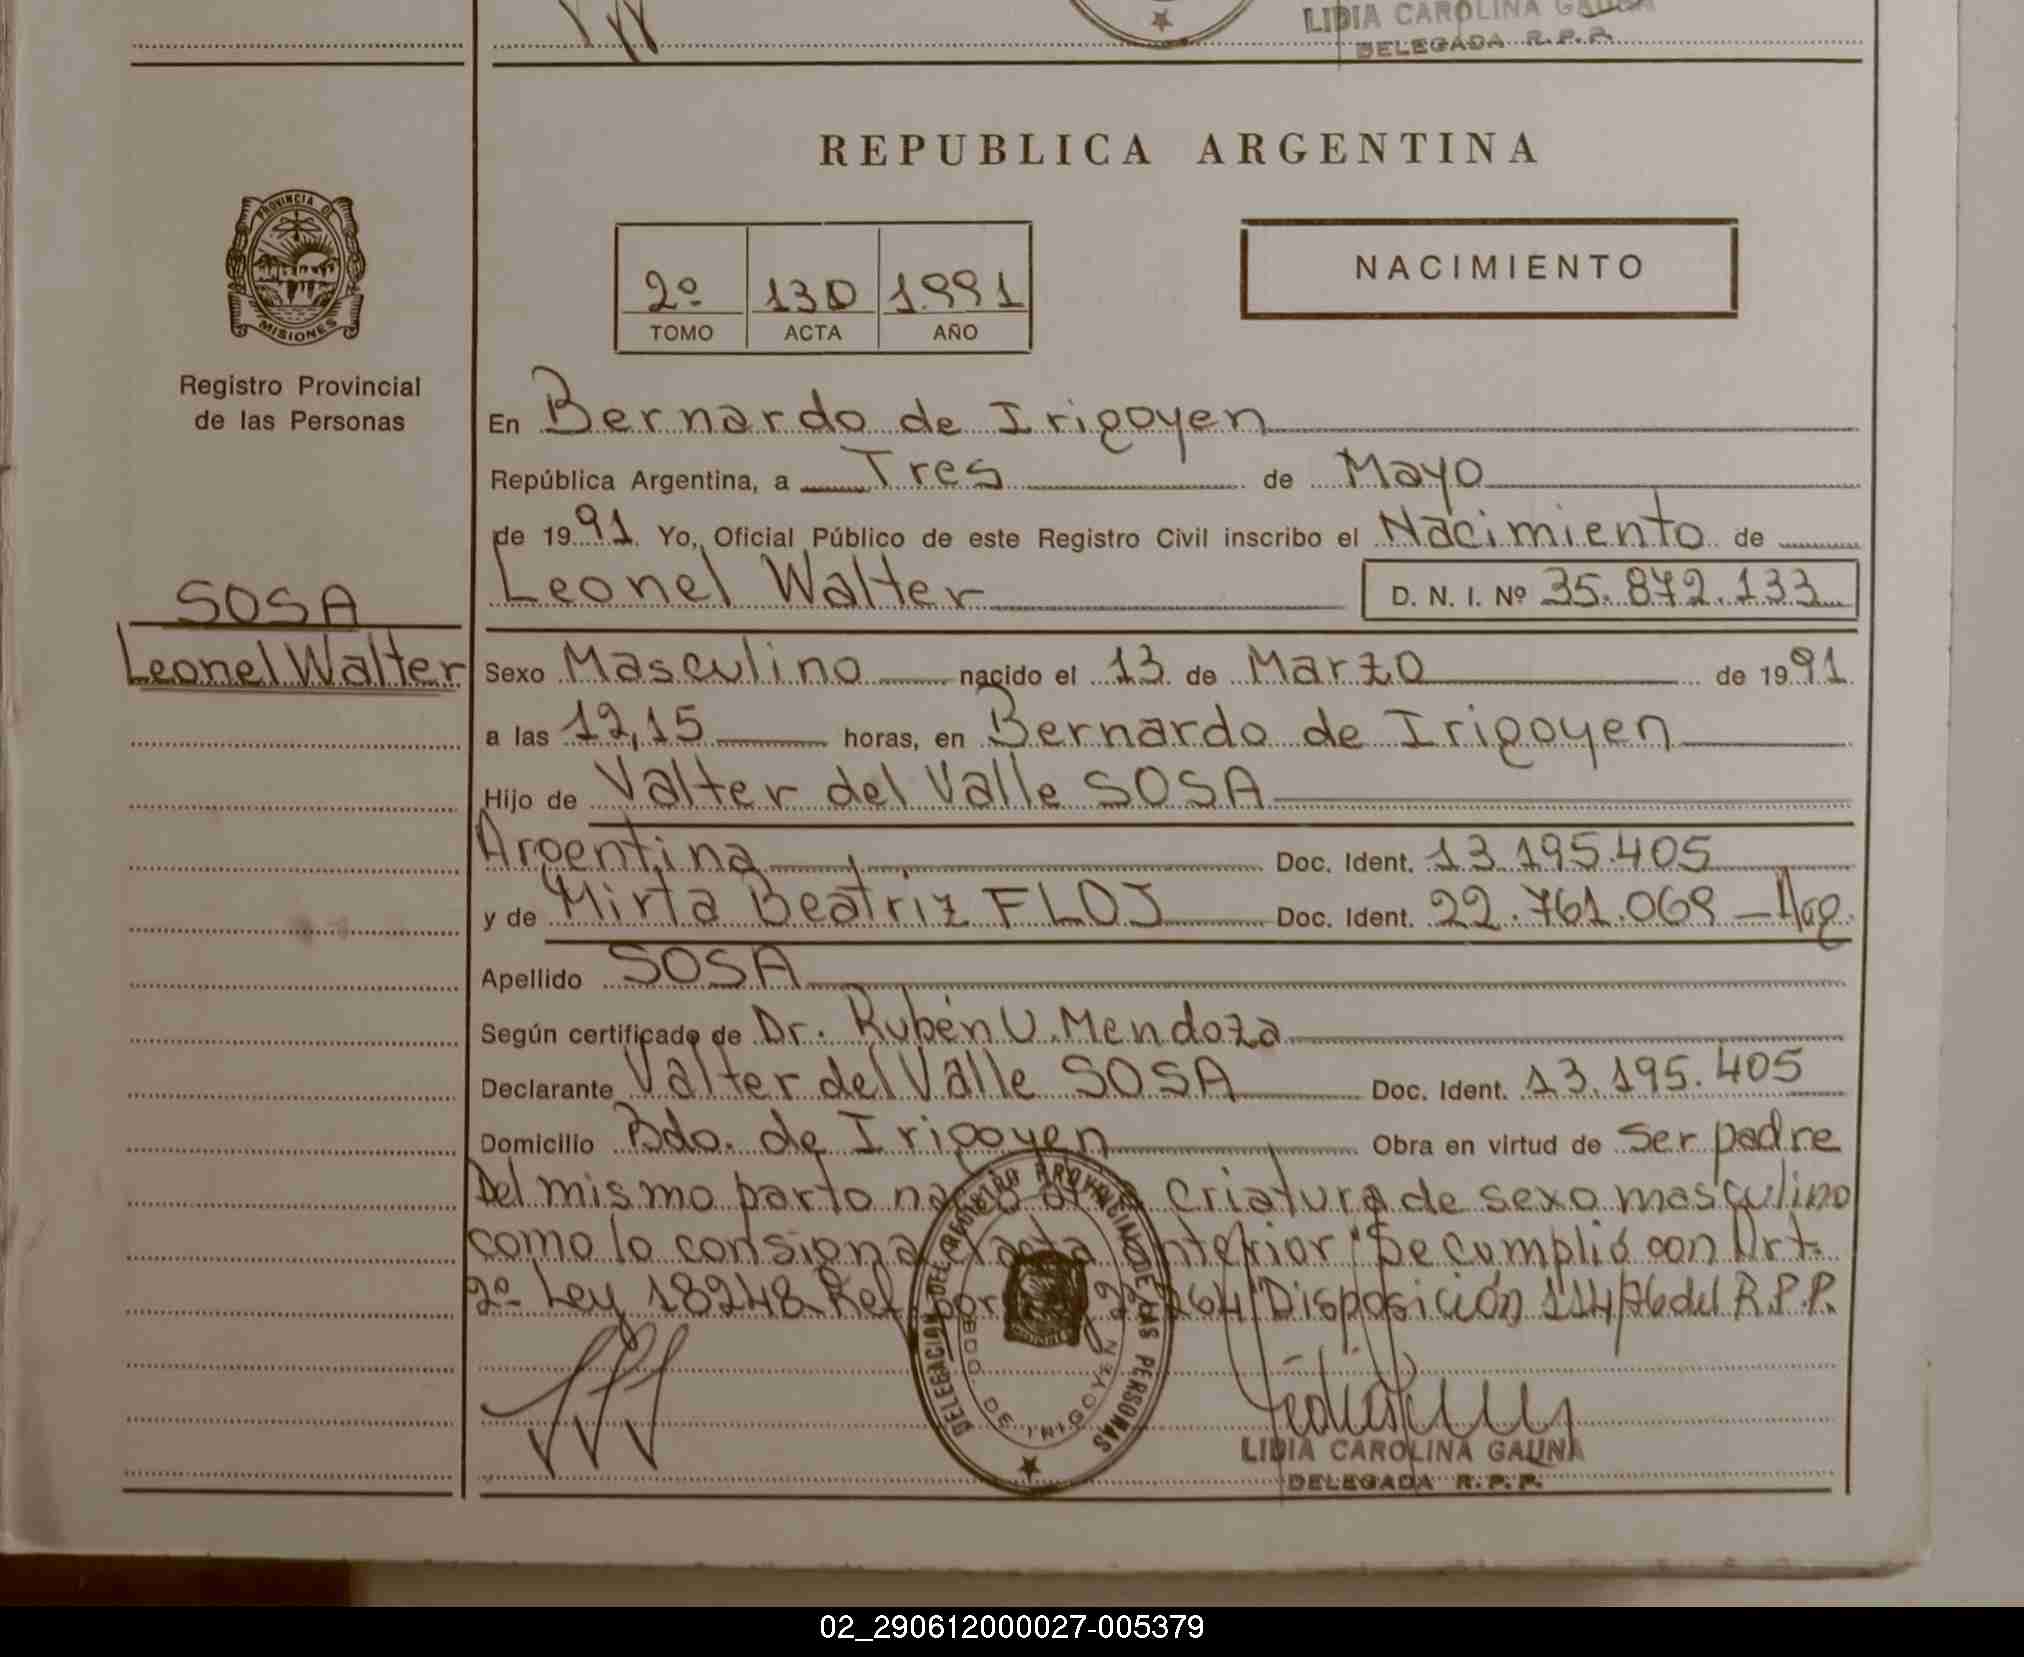 LIDIA CAROLINA GAUNA
DELEGADA R.P.P.
REPUBLICA ARGENTINA
PROVINCIA DE
MISIONES
Registro Provincial
de las Personas
2º 130 1.991
TOMO ACTA AÑO
NACIMIENTO
En Bernardo de Irigoyen
República Argentina, a Tres de Mayo
de 1991. Yo, Oficial Público de este Registro Civil inscribo el Nacimiento de
Leonel Walter D. N. I. Nº 35.872.133
SOSA
Leonel Walter
Sexo Masculino nacido el 13 de Marzo de 1991
a las 12,15 horas, en Bernardo de Irigoyen
Hijo de Valter del Valle SOSA
Argentina Doc. Ident. 13.195.405
y de Mirta Beatriz FLOJ Doc. Ident. 22.761.069 - Arg.
Apellido SOSA
Según certificado de Dr. Rubén U. Mendoza
Declarante Valter del Valle SOSA Doc. Ident. 13.195.405
Domicilio Bdo. de Irigoyen Obra en virtud de ser padre
Del mismo parto criatura de sexo masculino
como lo consigna Se cumplió con Art.
2º Ley 18248 Ref. por Disposición 114/76 del R.P.P.
DELEGACION DEL REGISTRO PROVINCIAL DE LAS PERSONAS
BDO. DE IRIGOYEN
LIDIA CAROLINA GAUNA
DELEGADA R.P.P.
02_290612000027-005379